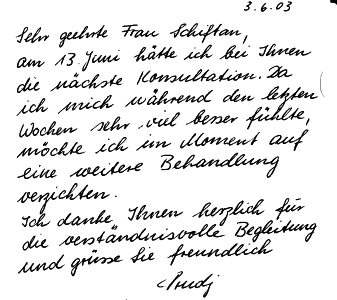 3.6.03
Sehr geehrte Frau Schiftan,
am 13. Juni hätte ich bei Ihnen
die nächste Konsultation. Da
ich mich während den letzten
Wochen sehr viel besser fühlte,
möchte ich im Moment auf
eine weitere Behandlung
verzichten.
Ich danke Ihnen herzlich für
die verständnisvolle Begleitung
und grüsse Sie freundlich